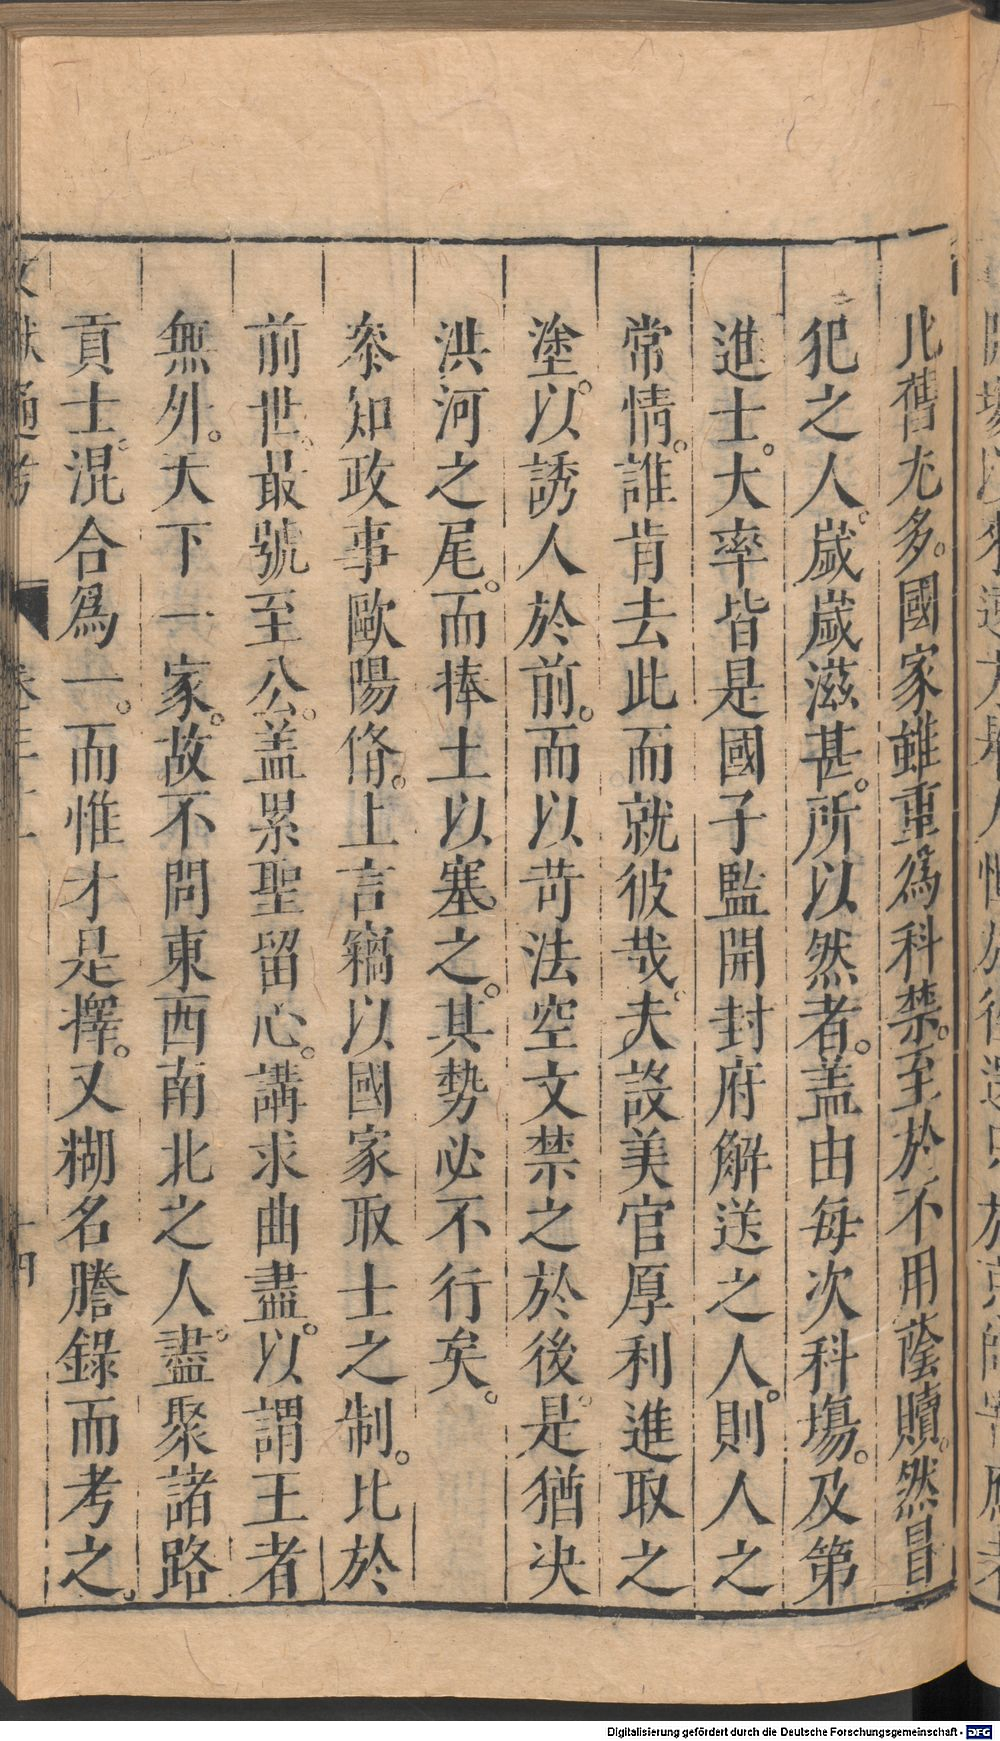 比舊尤多。國家雖重為科禁。至於不用蔭贖。然冒
犯之人。歲歲滋甚。所以然者。蓋由每次科場。及第
進士。大率皆是國子監開封府解送之人。則人之
常情。誰肯去此而就彼哉。夫設美官厚利進取之
塗。以誘人於前。而以苛法空文禁之於後。是猶決
洪河之尾。而捧土以塞之。其勢必不行矣。
叅知政事歐陽脩。上言竊以國家取士之制。比於
前世。最號至公。蓋累聖留心。講求曲盡。以謂王者
無外。天下一家。故不問東西南北之人。盡聚諸路
貢士。混合爲一。而惟才是擇。又糊名謄錄而考之。
文獻通考 卷三十一 十四
Digitalisierung gefördert durch die Deutsche Forschungsgemeinschaft - DFG